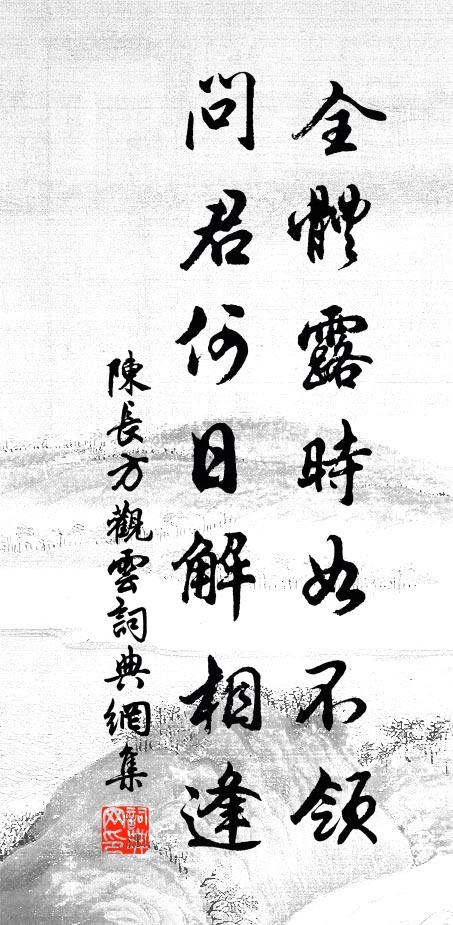 全體露時如不領
問君何日解相逢
陳長方觀雲詞典網集